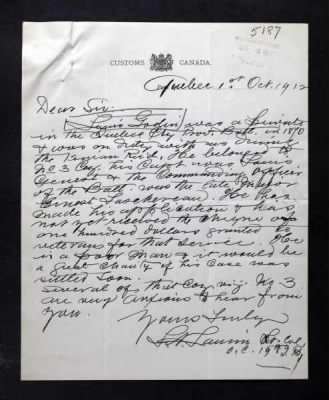 5187
CUSTOMS CANADA.
Quebec 1st Oct. 1912
Dear Sir:
Louis Godin was a Private
in the Quebec City Prov. Batt. in 1870
& was on duty with us during
the Fenian Raid, he belonged to
No 3 Coy, his Capt. was Louis
& the Commanding Officer
of the Batt. was the late Major
He has
made his application & has
not yet received the cheque of
one hundred dollars granted to
veterans for that service. He
is a poor man & it would be
a great charity if his case was
settled soon.
Several of that Coy, viz: No 3
are very anxious to hear from
you.
Yours truly
Lt. Col.
O.C.